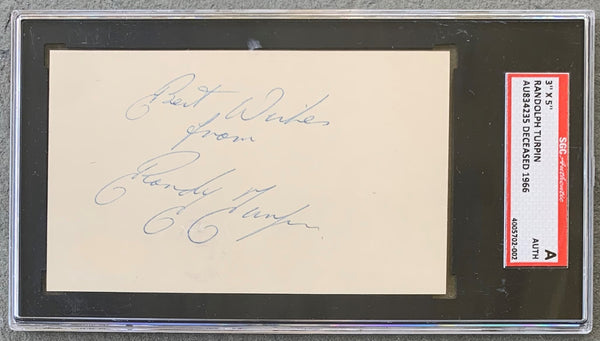 Best Wishes
from
Randy Turpin
SGC Authentic
3" X 5"
RANDOLPH TURPIN
AU834235 DECEASED 1966
A
AUTH
4005702-002